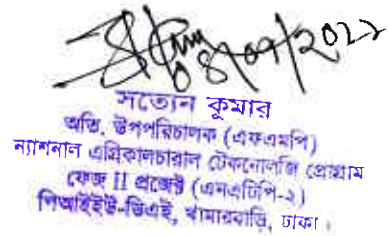 ০৪/০৭/২০২২
সত্যেন কুমার
অতি. উপপরিচালক (এফএমপি)
ন্যাশনাল এগ্রিকালচারাল টেকনোলজি প্রোগ্রাম
ফেজ II প্রজেক্ট (এনএটিপি-২)
পিআইইউ-ডিএই, খামারবাড়ি, ঢাকা।